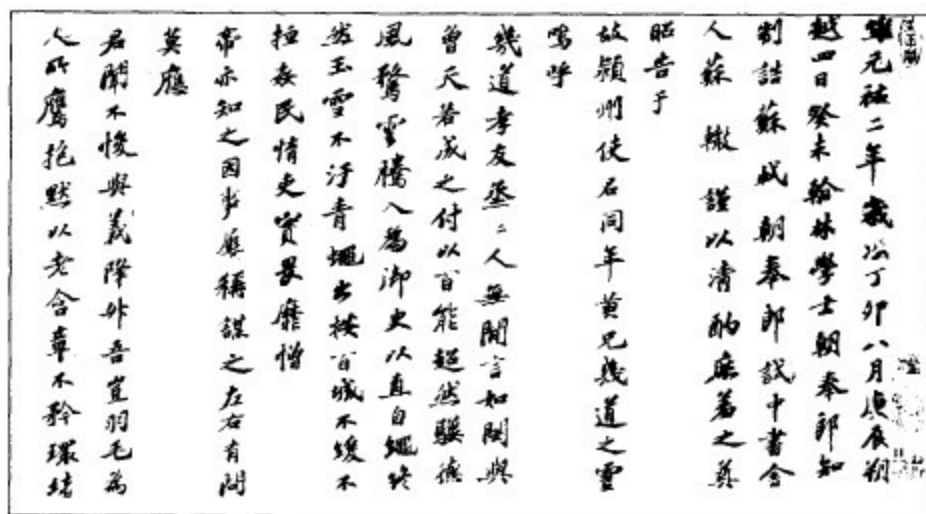 維元祐二年歲次丁卯八月庚辰朔
越四日癸未翰林學士朝奉郎知
制誥蘇軾朝奉郎試中書舍
人蘇轍謹以清酌庶羞之奠
昭告于
故潁州使君同年黃兄幾道之靈
嗚呼
幾道孝友烝〻人無閒言如閔與
曾天若成之付以百能超然驥德
風騖雲騰入為御史以直自繩終
然玉雪不汙青蠅出按百城不緩不
拒姦民惰吏實畏靡憎
帝亦知之因事屢稱謀之左右有問
莫應
君聞不悛與義降升吾豈羽毛為
人所鷹抱默以老含章不矜環堵